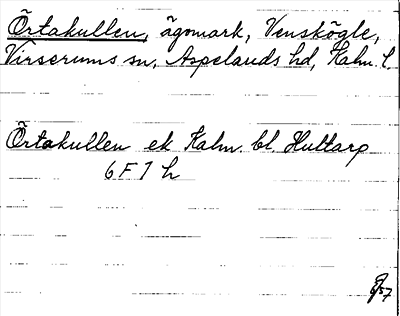 Örtakullen, ägomark, Venskögle,
Virserums sn, Aspelands hd, Kalm. l.
Örtakullen ek Kalm. bl. Hultarp
6 F 7 h